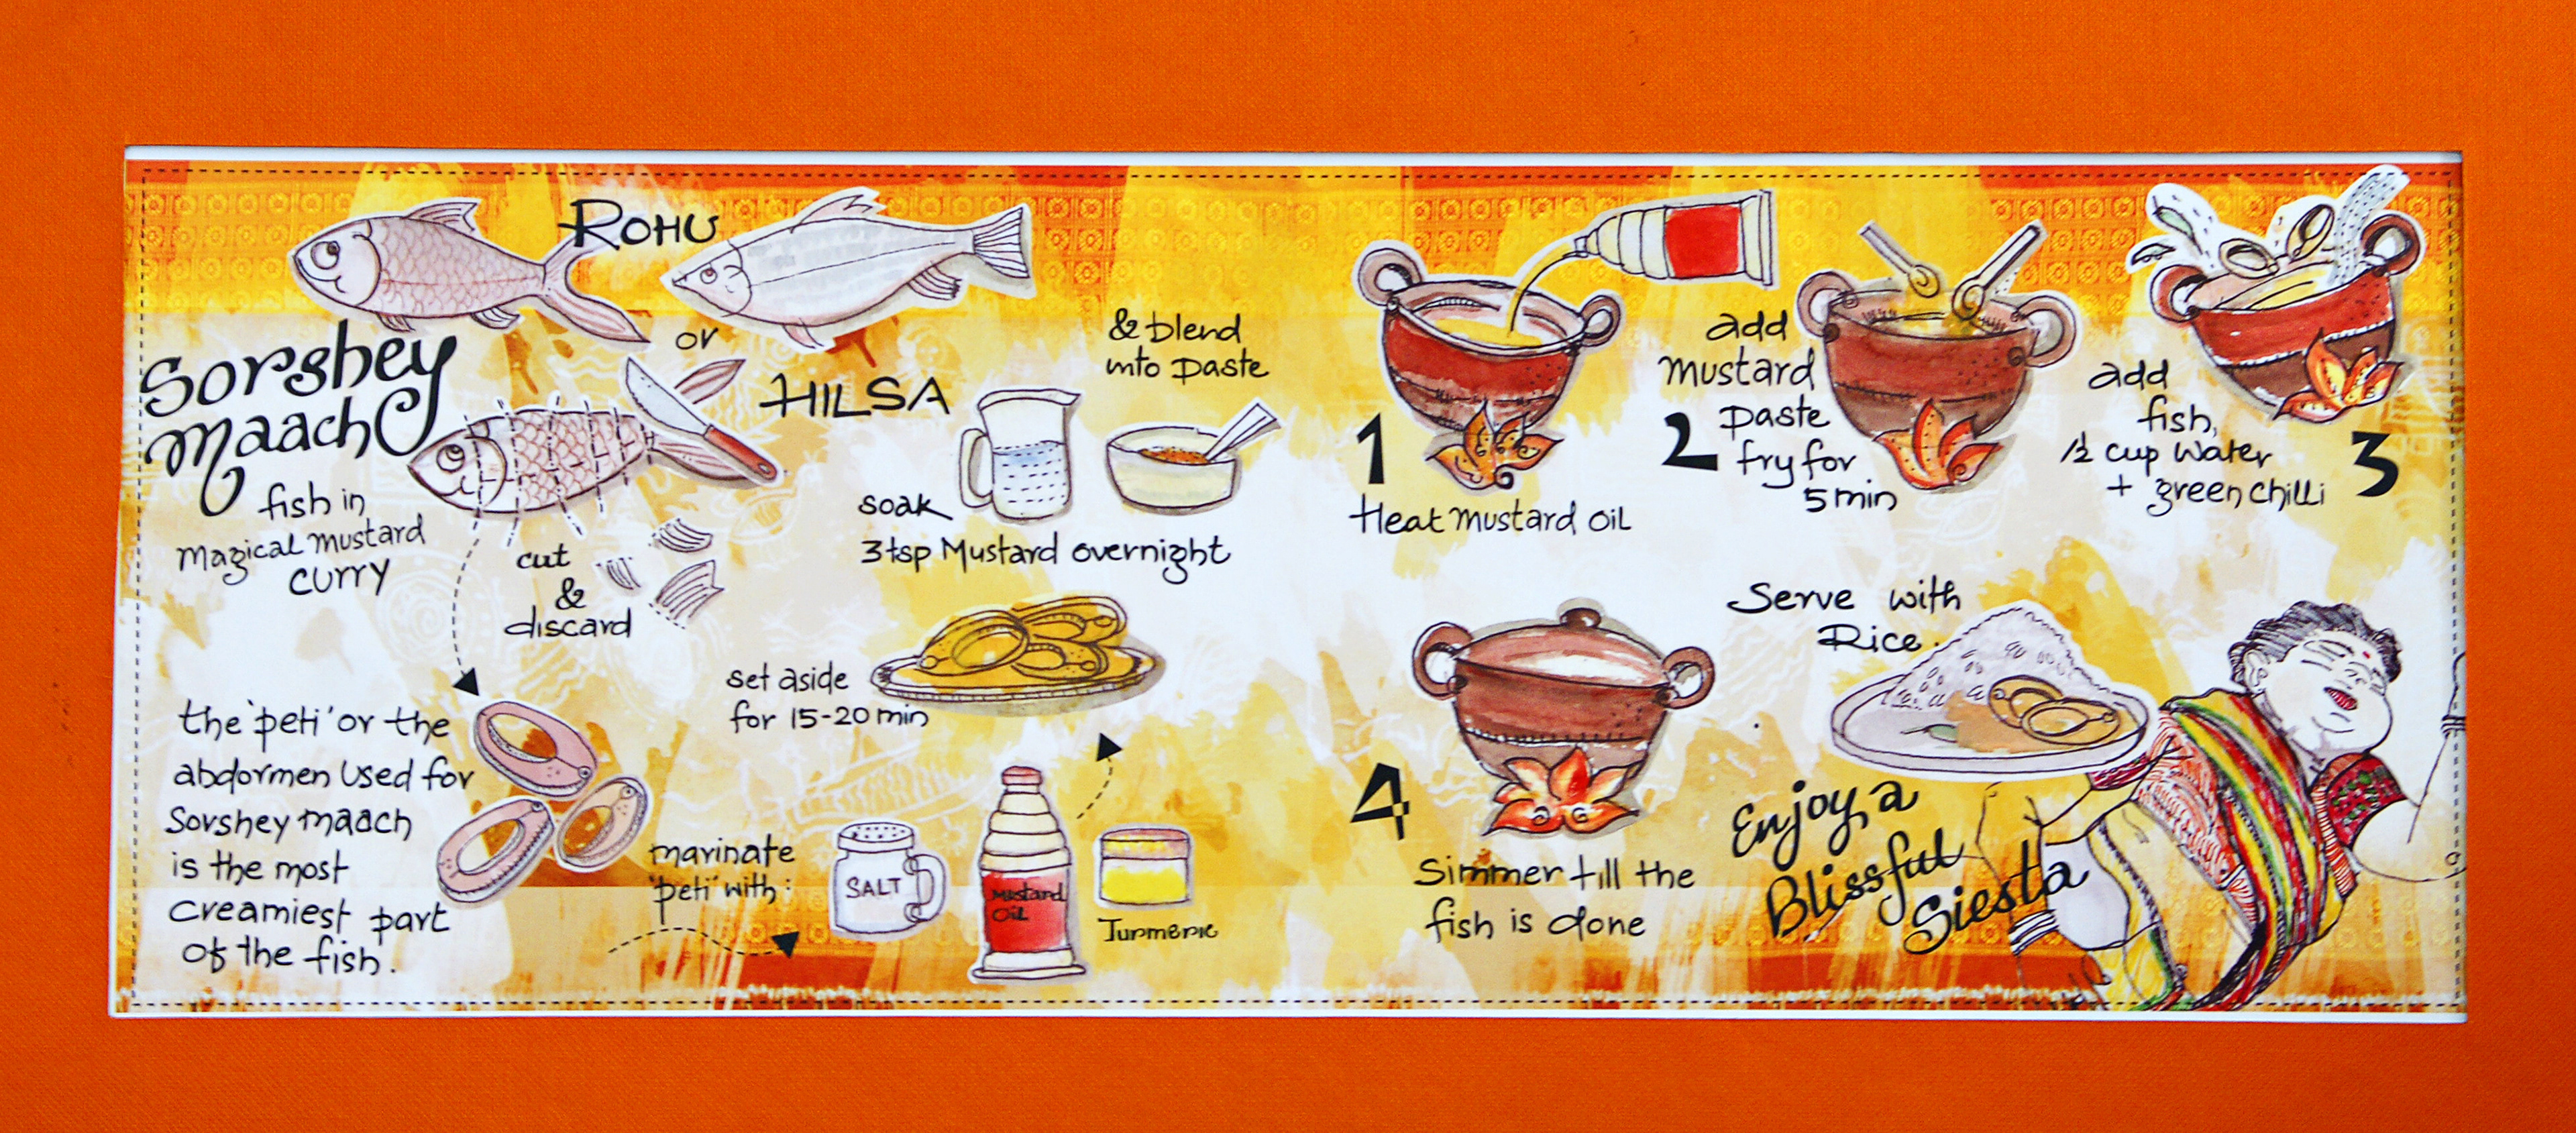 ROHU
or
HILSA
Sorshey
Maach
fish in
Magical Mustard
curry
cut
&
discard
the 'peti' or the
abdormen used for
Sorshey maach
is the most
creamiest part
of the fish.
& blend
into paste
soak
3 tsp Mustard overnight
set aside
for 15-20 min
marinate
'peti' with:
SALT
Mustard
Oil
Turmeric
1
Heat Mustard Oil
2
add
mustard
paste
fry for
5 min
add
fish,
1/2 cup water
+ green chilli
3
4
Simmer till the
fish is done
Serve with
Rice.
Enjoy a
Blissful
Siesta